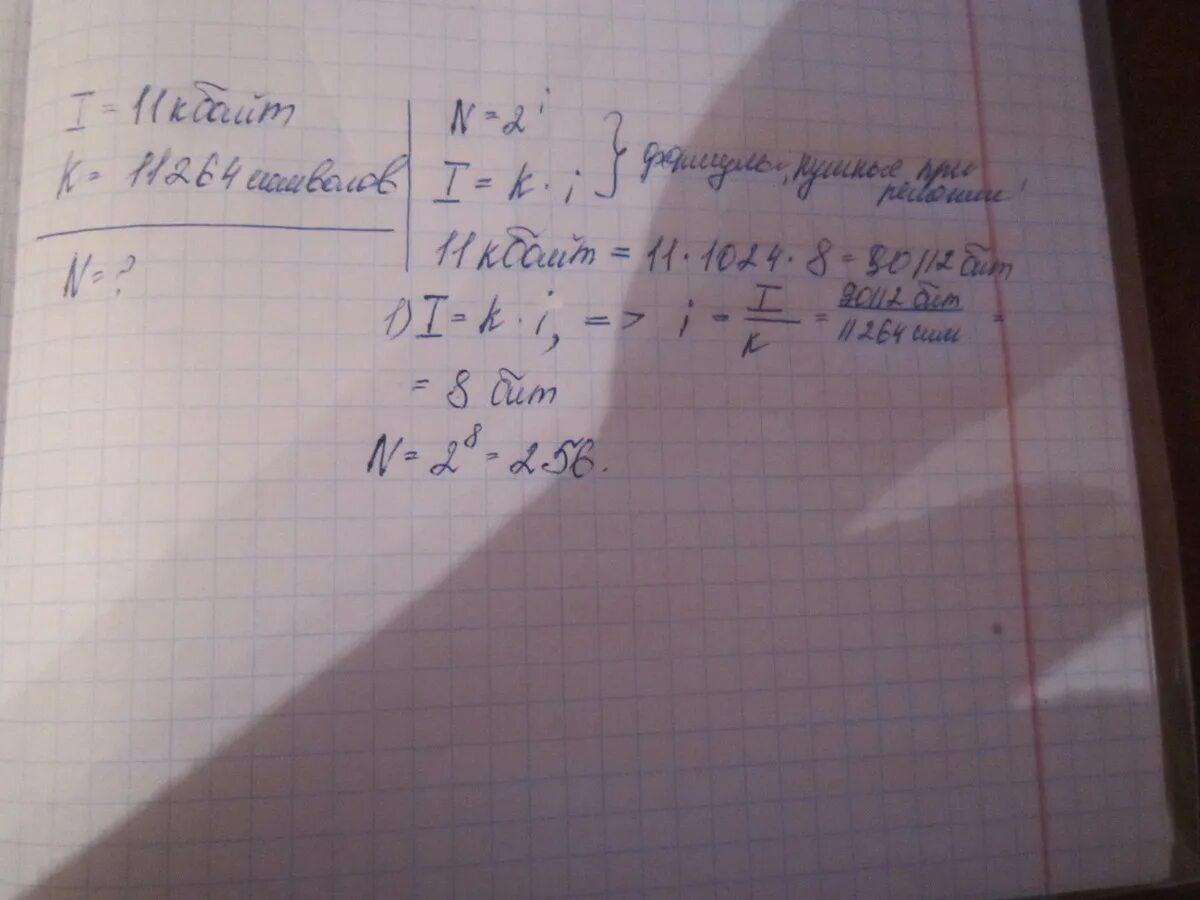 I = 11 кбайт
K = 11264 символов
N = ?
N = 2^i
I = K · i } формулы, нужные при решении
11 кбайт = 11 · 1024 · 8 = 90112 бит
1) I = k · i, => i = I/K = 90112 бит/11264 сим =
= 8 бит
N = 2^8 = 256.